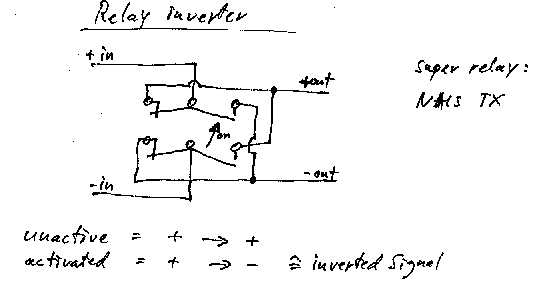 Relay inverter
+ in
super relay:
+out
NAIS TX
on
-out
-in
unactive = + → +
activated = + → - ≙ inverted Signal